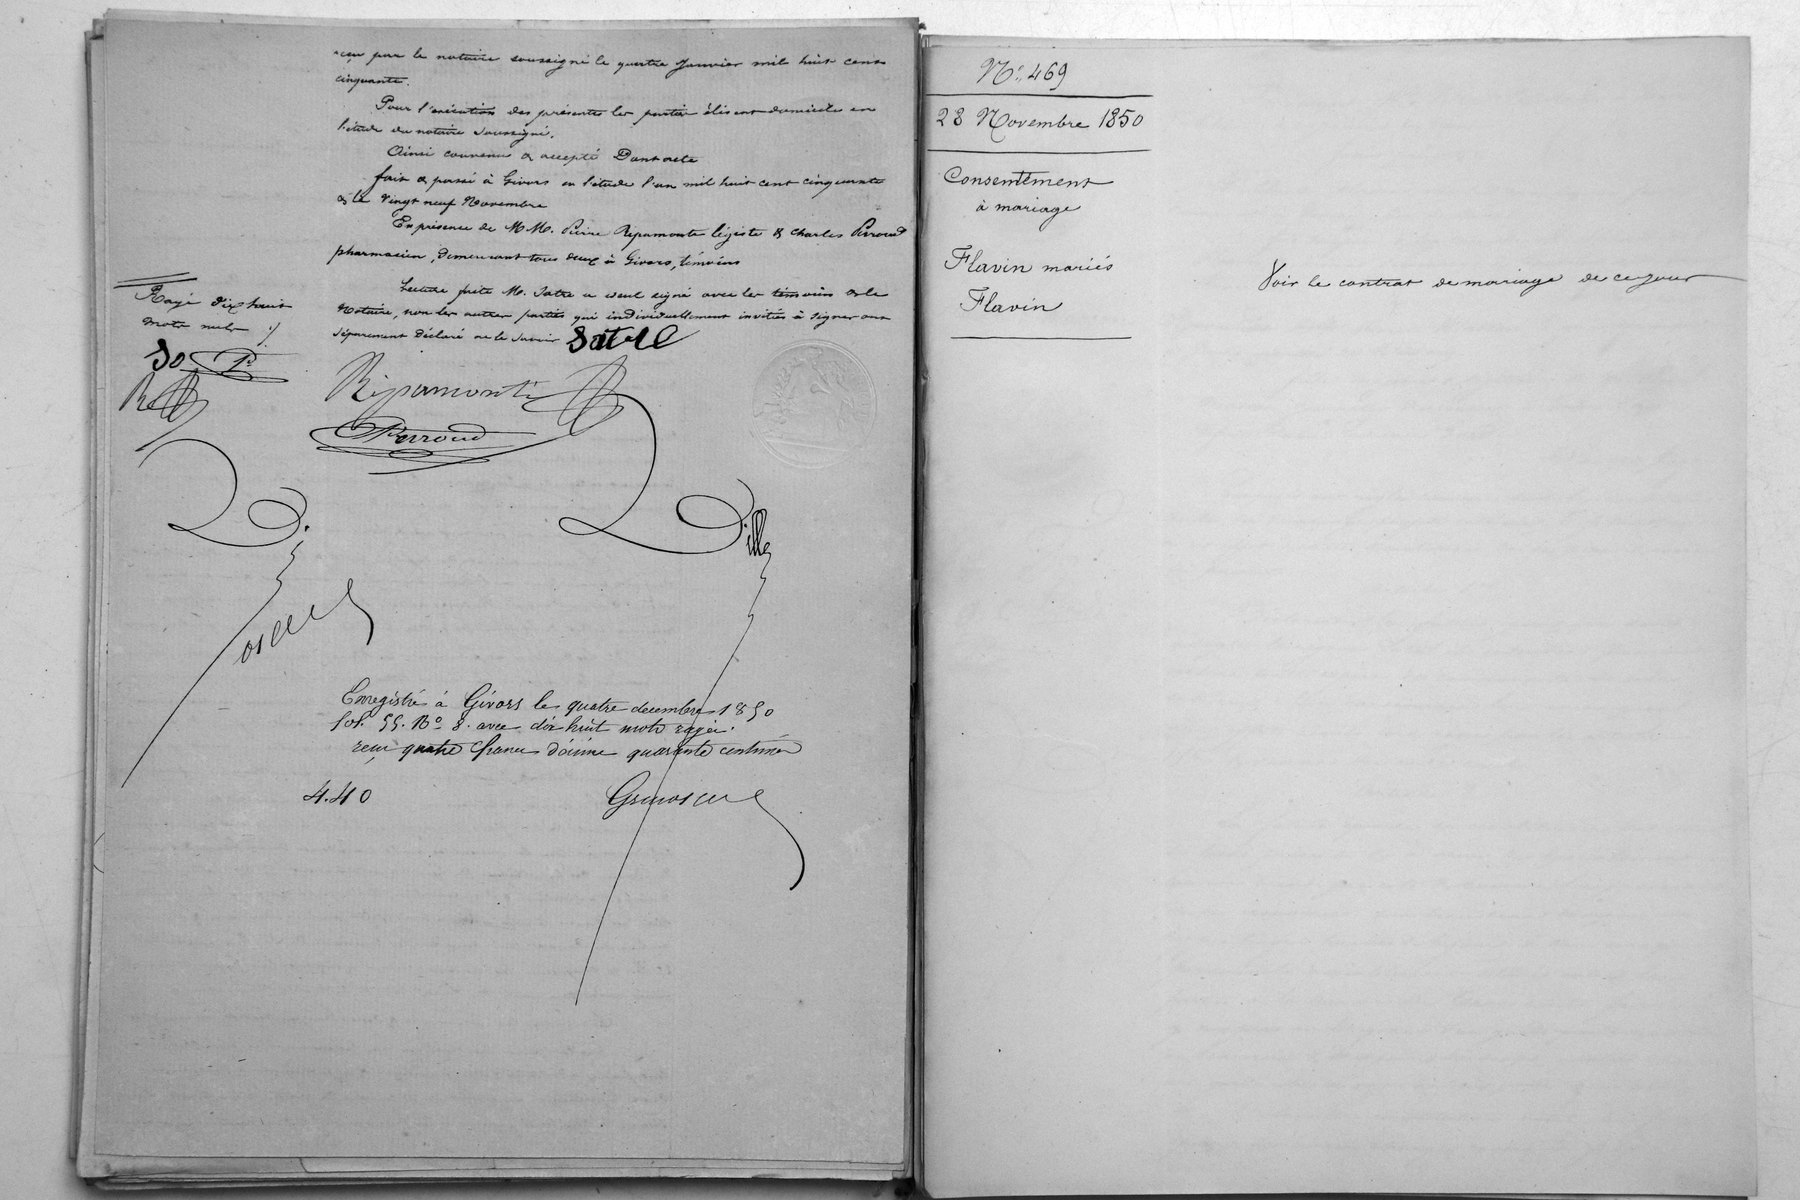 reçu par le notaire soussigné le quatre Janvier mil huit cent
cinquante.
Pour l'exécution des présentes les parties élisent domicile en
l'étude du notaire soussigné.
Ainsi convenu & accepté Dont acte
fait & passé à Givors en l'étude l'an mil huit cent cinquante
& le vingt neuf Novembre
En présence de MM. Pierre Repamonte légiste & Charles Perroud
pharmacien, demeurant tous deux à Givors, témoins
Lecture faite M. Satre a seul signé avec les témoins & le
Notaire, non les autres parties qui individuellement invitées à signer ont
séparément déclaré ne le savoir Satre
Rayé dix huit
mots nuls
Ripamonti
Perroud
Enregistré à Givors le quatre decembre 1850
fol. 55. Ro 8. avec dix huit mots rayés.
reçu quatre francs décime quarante centimes
4.40
No. 469
28 Novembre 1850
Consentement
à mariage
Flavin mariés
Flavin
Voir le contrat de mariage de ce jour